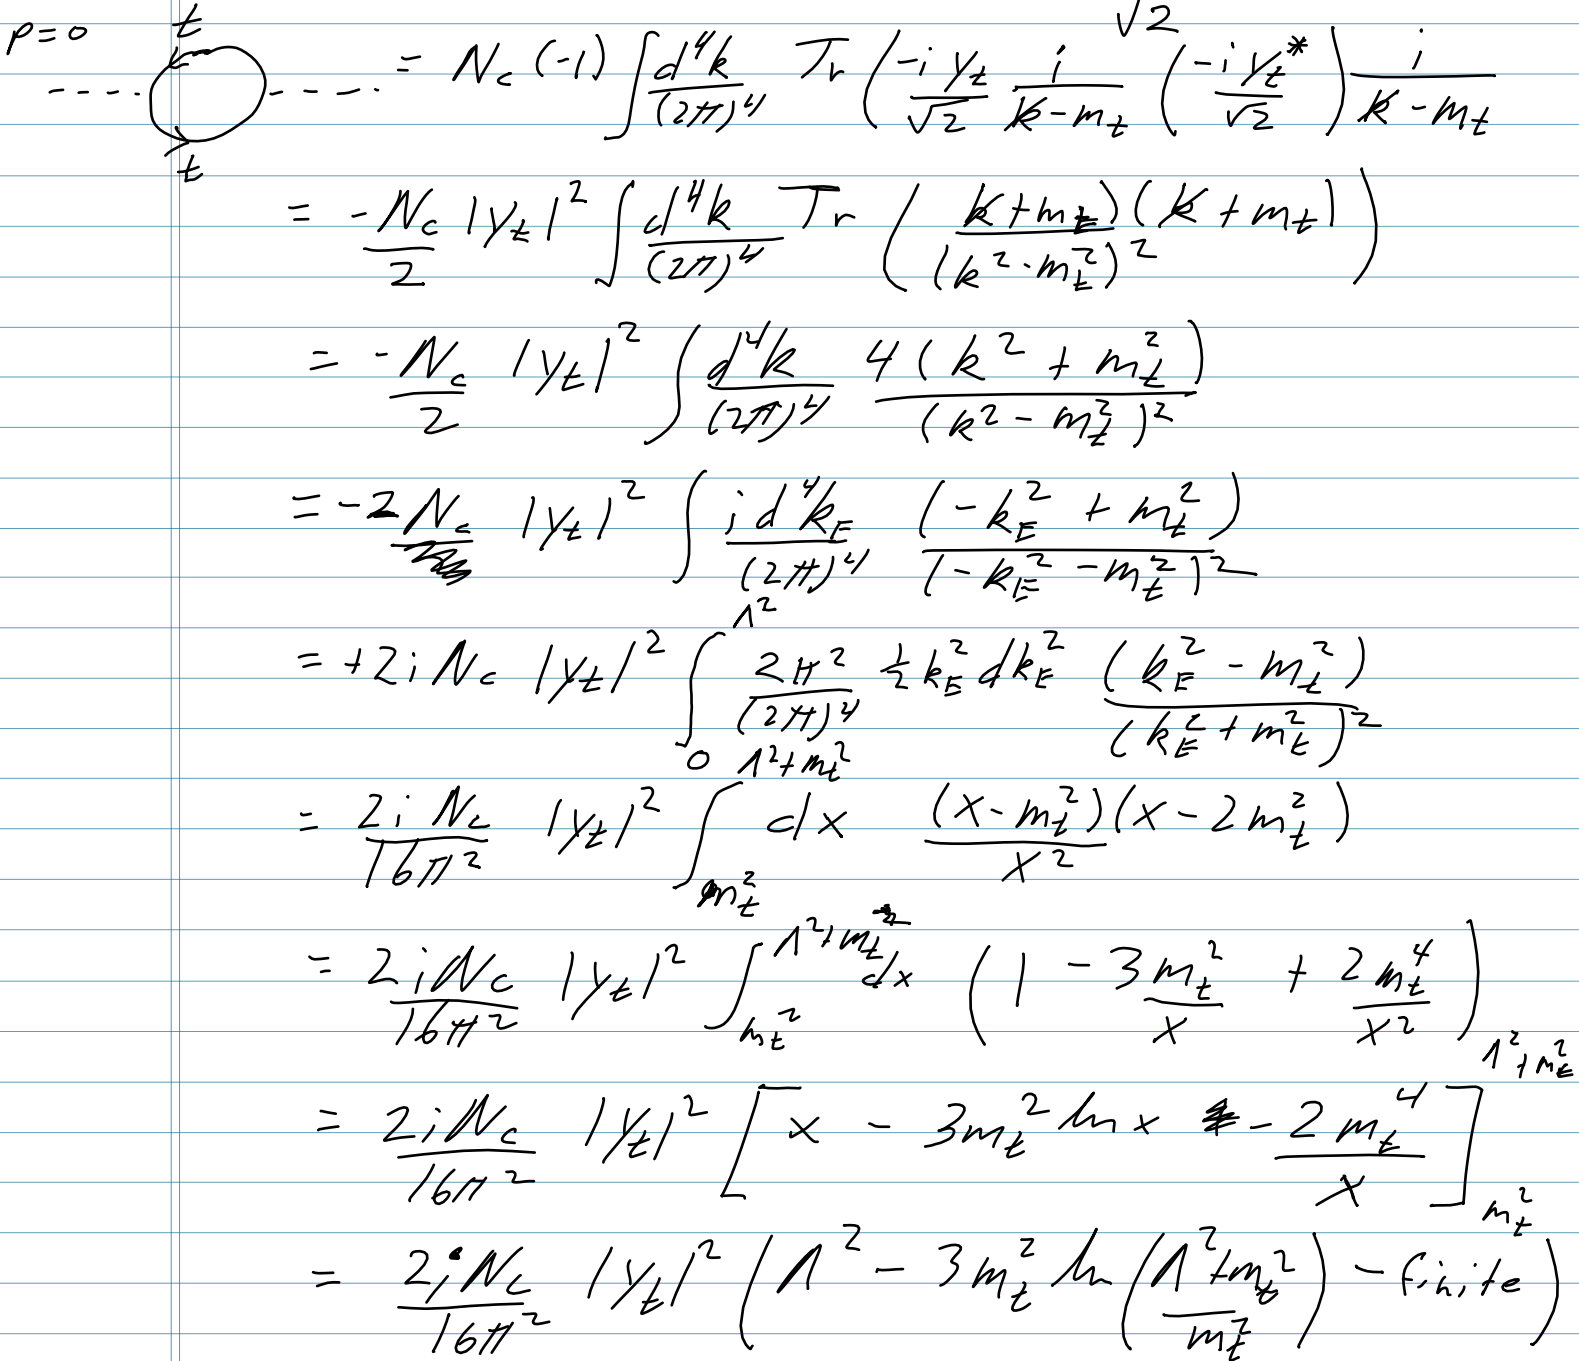 p=0 t t = N_c (-1) ∫ d⁴k/(2π)⁴ Tr ( -i y_t/√2 i/(k̸ - m_t) ( -i y_t*/√2 ) i/(k̸ - m_t) √2
= -N_c/2 |y_t|² ∫ d⁴k/(2π)⁴ Tr ( (k̸ + m_t)(k̸ + m_t) / (k² - m_t²)² )
= -N_c/2 |y_t|² ∫ d⁴k/(2π)⁴ 4(k² + m_t²)/(k² - m_t²)²
= -2 N_c |y_t|² ∫ i d⁴k_E/(2π)⁴ (-k_E² + m_t²)/(-k_E² - m_t²)²
= +2i N_c |y_t|² ∫_0^{Λ²} 2π²/(2π)⁴ ½ k_E² dk_E² (k_E² - m_t²)/(k_E² + m_t²)²
= 2i N_c/16π² |y_t|² ∫_{m_t²}^{Λ²+m_t²} dx (x - m_t²)(x - 2m_t²)/x²
= 2i N_c/16π² |y_t|² ∫_{m_t²}^{Λ²+m_t²} dx ( 1 - 3m_t²/x + 2m_t⁴/x² )
= 2i N_c/16π² |y_t|² [ x - 3m_t² ln x - 2m_t⁴/x ]_{m_t²}^{Λ²+m_t²}
= 2i N_c/16π² |y_t|² ( Λ² - 3m_t² ln( (Λ²+m_t²)/m_t² ) - finite )